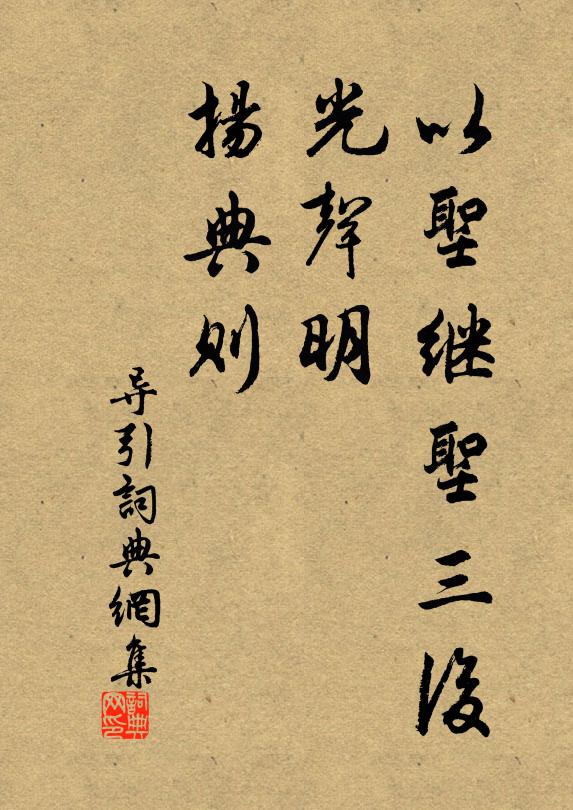 以聖继聖三後
光聲明
揚典则
导引詞典網集
詞典
网印